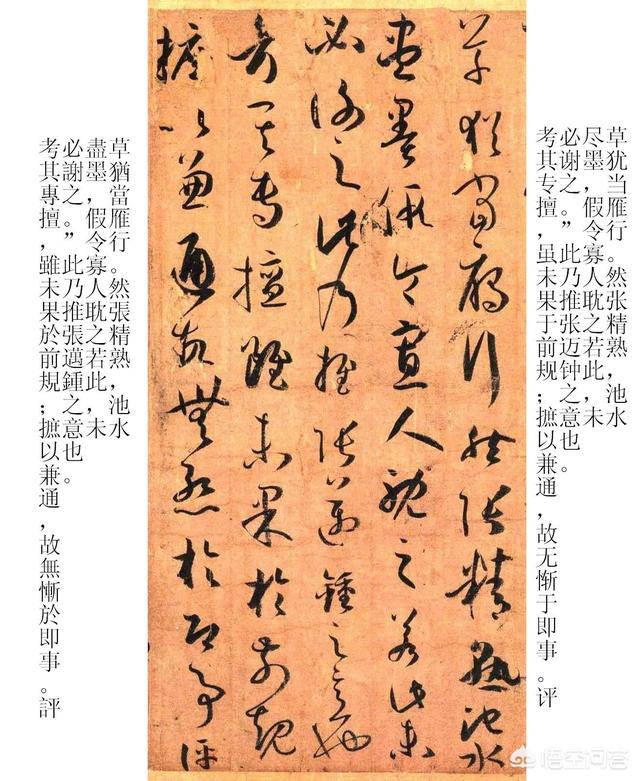 草犹当雁行。然张精熟，池水
尽墨，假令寡人耽之若此，未
必谢之。”此乃推张迈钟之意也。
考其专擅，虽未果于前规；摭以兼通，故无惭于即事。评
草猶當雁行然張精熟池水
盡墨假令寡人耽之若此未
必謝之此乃推張邁鍾之意也
考其專擅雖未果於前規
摭以兼通故無慚於即事評
草猶當雁行。然張精熟，池水
盡墨，假令寡人耽之若此，未
必謝之。”此乃推張邁鍾之意也。
考其專擅，雖未果於前規；摭以兼通，故無慚於即事。評
悟空问答